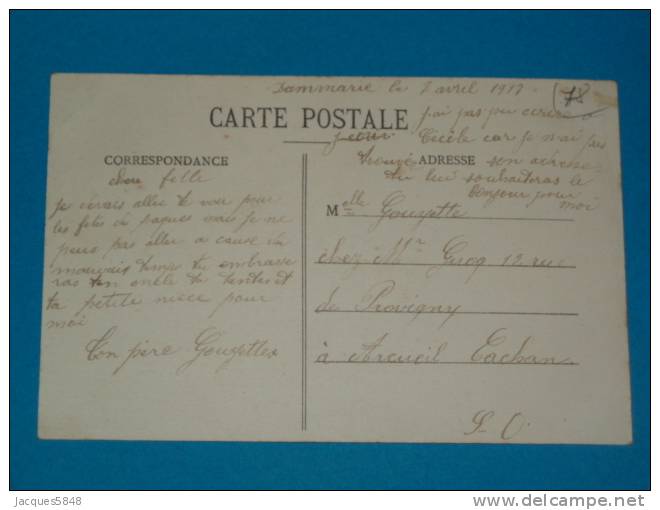 Dammarie le 7 avril 1917
78
CARTE POSTALE
j'ai pas pu écrire a
Cécile car je n'ai pas
trouvé son adresse
tu lui souhaiteras le
bonjour pour
moi
CORRESPONDANCE
ADRESSE
chere fille
je devais aller te voir pour
les fetes de paques mais je ne
peus pas aller a cause du
mauvais temp tu embrasse
ras ton oncle ta tente et
ta petite niece pour
moi
Ton père Gouzette
Melle Gouzette
chez Mr Gucq 12 rue
de Provigny
à Arcueil Cachan
S. O.
Jacques5848
delcampe.net